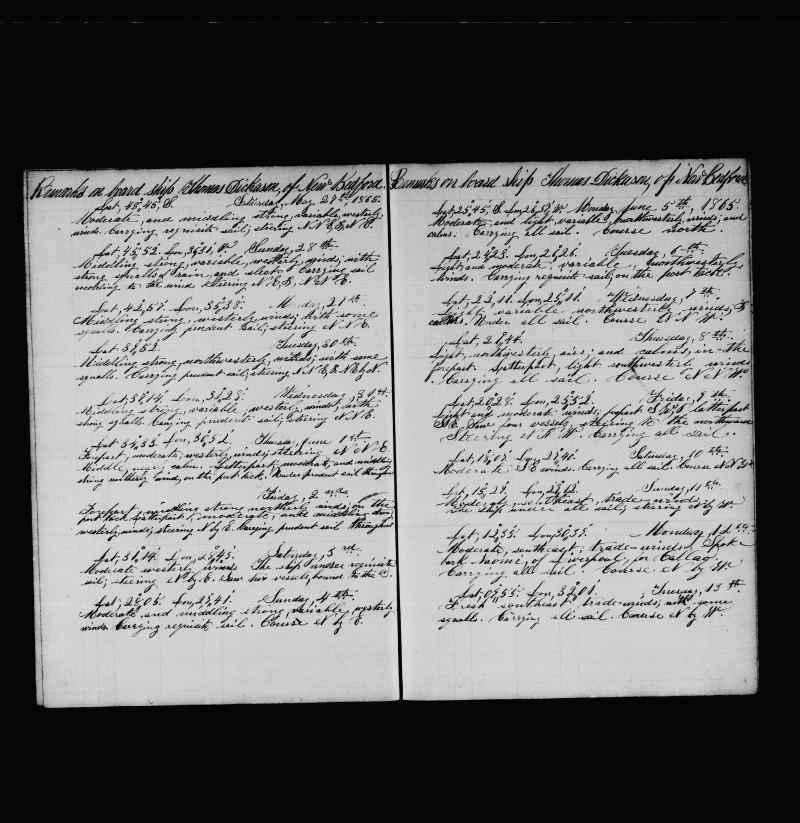 Remarks on board ship Thomas Dickason, of New Bedford
Lat, 48,45 S. Saturday, May 27th, 1865.
Moderate, and middling strong, variable, westerly
winds. Carrying requisite sail; steering N N E, & N E.
Lat, 45,52 Lon, W Sunday, 28th
Middling strong, variable, westerly, winds; with
strong squalls of rain, and sleet. Carrying sail
according to the wind Steering N E, & N N E.
Lat, 42,57. Lon, 35,38. Monday, 29th
Middling strong, westerly, winds; with some
squalls. Carrying prudent sail; steering N N E.
Lat, Tuesday, 30th
Middling strong, northwesterly, winds; with some
squalls. Carrying prudent sail; steering N N E, & N by N
Lat, 37,14 Lon, 31,23. Wednesday, 31st
Middling strong, variable, westerly, winds; with
strong squalls. Carrying prudent sail; steering N N E.
Lat, 34,33. Lon, 30,52. Thursday, June 1st
Forepart, moderate, westerly, winds; steering N N E.
Middle, near, calm. Latterpart, moderate, and middling
strong northerly, wind, on the port tack. Under prudent sail throughout
Friday, 2nd
Forepart, middling strong northerly winds; on the
port tack. Latterpart, moderate, and middling strong
westerly, winds; steering N by E. Carrying prudent sail throughout
Lat, 31,14. Lon, 29,45. Saturday, 3rd
Moderate westerly winds The ship under requisite
sail; steering N by E. Saw two vessels, bound to the
Lat, 28,05. Lon, 27,41. Sunday, 4th
Moderate and middling strong, variable, westerly
winds. Carrying requisite sail. Course N by E.
Remarks on board ship Thomas Dickason, of New Bedford
Lat, 25,45. S. Lon, W Monday, June 5th, 1865.
Moderate, and light, variable, northwesterly, winds; and
calms. Carrying all sail. Course north.
Lat, 24,23. Lon, 26,26. Tuesday 6th
Light, and moderate, variable, northwesterly
winds. Carrying requisite sail; on the port tack.
Lat, 22,11. Lon, 25,11. Wednesday, 7th
Light, variable northwesterly winds; &
calms. Under all sail. Course N N W.
Lat, 21,44. Thursday, 8th
Light, northwesterly, airs; and calms, in the
forepart. Latterpart, light southwesterly winds
. Carrying all sail. Course N N W
Lat, 20,28. Lon, 25,52. Friday, 9th
Light and moderate winds; forepart latterpart
S E. Saw four vessels, steering to the northward
Steering N N W. Carrying all sail.
Lat, 18,07. Lon, 27,40. Saturday, 10th
Moderate S E winds. Carrying all sail. Course N N W
Lat, 15,27. Lon, Sunday, 11th
Moderate, southeast, trade-winds.
The ship under all sail; steering N by W.
Lat, 12,35. Lon, 30,35. Monday, 12th
Moderate, southeast, trade-winds. Spoke
bark Naomi, of Liverpool, for Callao.
Carrying all sail. Course N by W
Lat, 09,33. Lon, 32,01. Tuesday, 13th
Fresh southeast, trade-winds; with some
squalls. Carrying all sail. Course N by W.